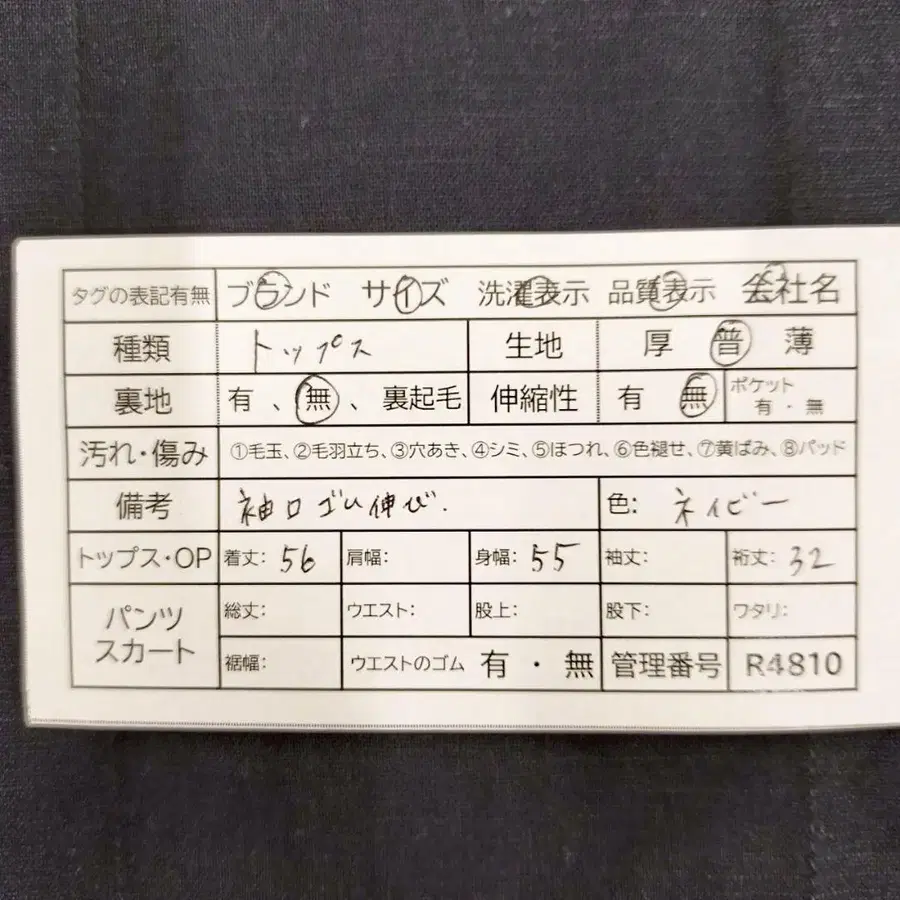 タグの表記有無 ブランド サイズ 洗濯表示 品質表示 会社名
種類 トップス 生地 厚 普 薄
裏地 有 、 無 、 裏起毛 伸縮性 有 無 ポケット 有 ・ 無
汚れ・傷み ①毛玉、②毛羽立ち、③穴あき、④シミ、⑤ほつれ、⑥色褪せ、⑦黄ばみ、⑧パッド
備考 袖口ゴム伸び. 色: ネイビー
トップス・OP 着丈: 56 肩幅: 身幅: 55 袖丈: 裄丈: 32
パンツ スカート 総丈: ウエスト: 股上: 股下: ワタリ:
裾幅: ウエストのゴム 有 ・ 無 管理番号 R4810